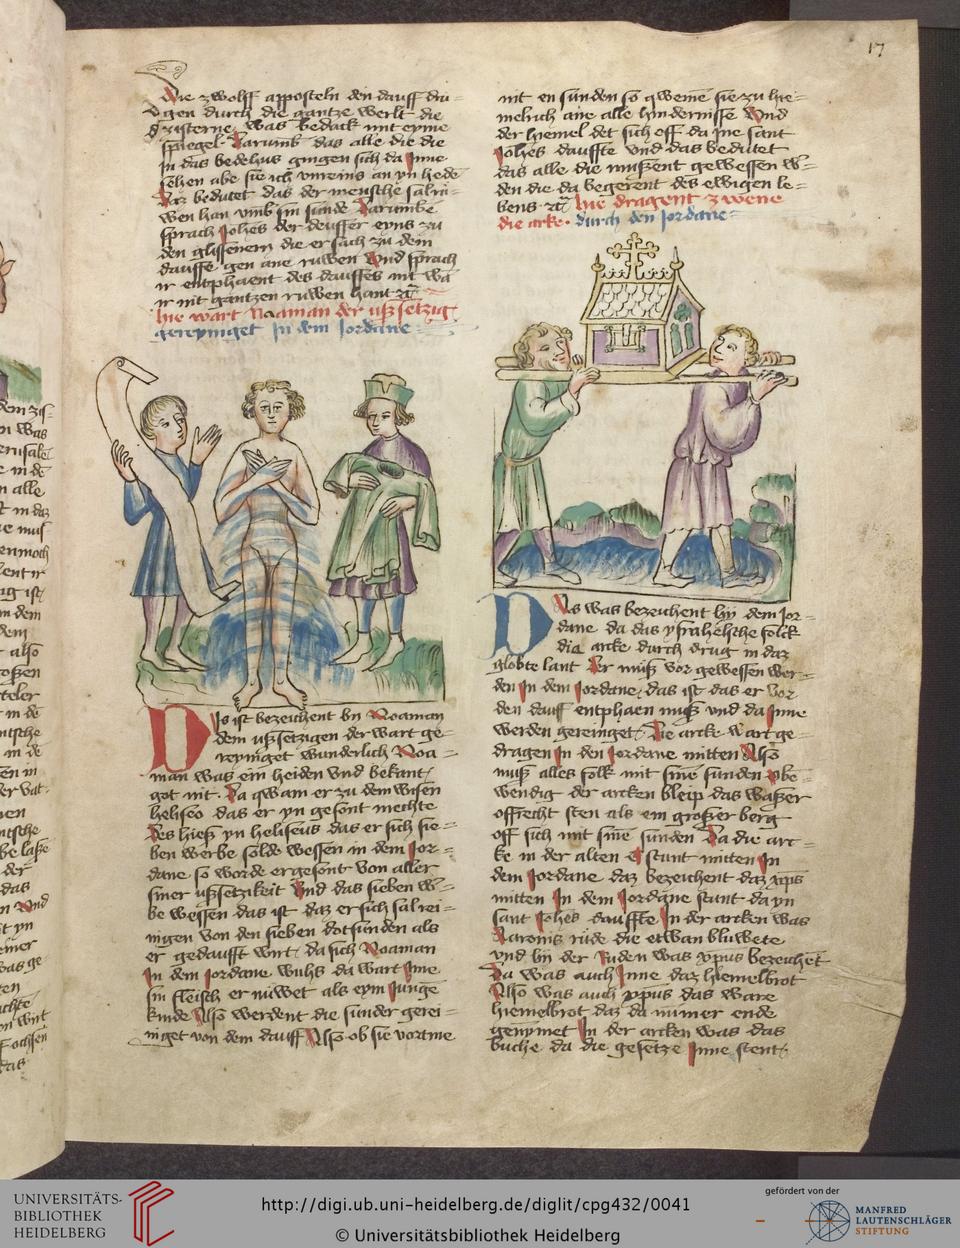 17
Die zwolff apposteln den dauff dru=
gen durch die gantze werlt die
zisterne was bedackt mit eyme
spiegel Darumb das alle die die
in das bedehus gingen sich da Inne
sehen abe sie icht unreins an yn hede
Daz bedutet das der mensche sal ru=
wen han umb sin sunde Darumbe
sprach Johes der deuffer eyns zu
den glissenern die er sach zu dem
dauffe gen ane ruwen Und sprach
ir entphaent des dauffes nit wā
ir nit gantzen ruwen hant
hie wart Naaman der ußsetzig
gereyniget In dem Jordane
DIs ist bezeichent bn Noaman
dem ußsetzigen der wart ge=
reyniget wunderlich Noa=
man was ein heiden und bekant
got nit. Da qwam er zu dem wisen
heliseo das er yn gesont mechte
Des hieß yn heliseus das er sich sie=
ben werbe solde wessen in dem Jor=
dane so worde er gesont von aller
siner ußsetzikeit Und das sieben w=
be wessen das ist daz er sich sal rei=
nigen von den sieben dotsunden als
er gedaufft wirt da sich Noaman
In dem Jordane wuhs da wart Ime
sin fleisch erniwet als eym Junge
kinde Also werdent die sunder gerei=
niget von dem dauff Also ob sie vortme
nit en sunden so qweme sie zu hie=
melrich ane alle hindernisse Und
der hiemel det sich off da ine sant
Johes dauffte Und das bedutet
das alle die mußent gewessen w=
den die da begerent des ewigen le=
bens hie dragent zwene
die arke durch den Jordane
DIs was bezeichent by dem Jor=
dane da das ysrahelsche folck
die arke durch drug in daz
globte lant Er muß vor gewessen wer=
den in dem Jordane das ist das er vor
den dauff entphaen muß und da Inne
werden gereinget Die arcke wart ge=
dragen In den Jordane mitten Also
muß alles folk mit sine sunden obe=
wendig der arcken bleip das waßer
offrecht sten als ein großer berg
off sich mit sine sunden Da die arc=
ke in der alten e stunt mitten In
dem Jordane daz bezeichent daz xps
mitten In dem Jordane stunt da yn
sant Johes dauffte In der arcken was
Aaronis rude die etwan bluwete
und bn der Ruden was xpus bezeichet
Da was auch Inne daz hiemelbrot
Also was auch xpus das ware
hiemelbrot daz da nimer ende
genymet In der arcken was das
buche da die gesetze Inne stent
UNIVERSITÄTS-
BIBLIOTHEK
HEIDELBERG
http://digi.ub.uni-heidelberg.de/diglit/cpg432/0041
© Universitätsbibliothek Heidelberg
gefördert von der
MANFRED
LAUTENSCHLÄGER
STIFTUNG